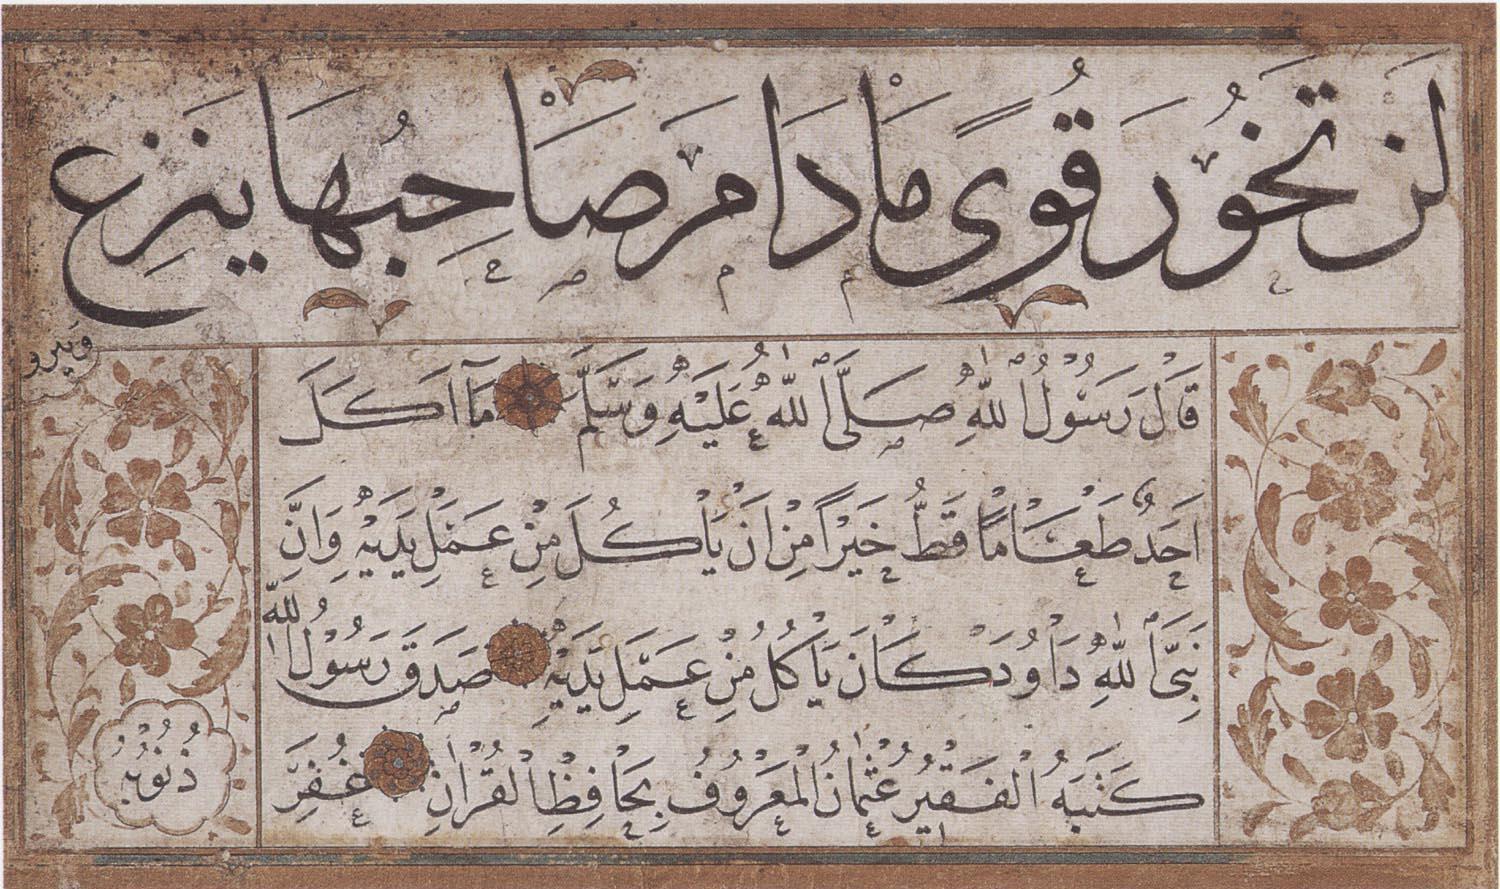 لَنْ تَخُورَ قُوًى مَا دَامَ صَاحِبُهَا يَنْزِعُ
وَيَنْزُو
قَالَ رَسُولُ اللهِ صَلَّى اللهُ عَلَيْهِ وَسَلَّمَ مَا اَكَلَ
اَحَدٌ طَعَامًا قَطُّ خَيْرًا مِنْ اَنْ يَاْكُلَ مِنْ عَمَلِ يَدَيْهِ وَاِنَّ
نَبِيَّ اللهِ دَاوُدَ كَانَ يَاْكُلُ مِنْ عَمَلِ يَدَيْهِ صَدَقَ رَسُولُ الله
كَتَبَهُ الْفَقِيرُ عُثْمَانُ الْمَعْرُوفُ بِحَافِظِ الْقُرْاٰنِ غُفِرَ
ذُنُوبُهُ